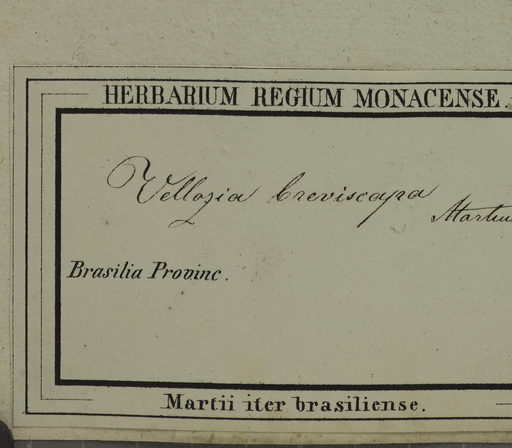 HERBARIUM REGIUM MONACENSE.
Vellozia breviscapa
Brasilia Provinc.
Martii iter brasiliense.